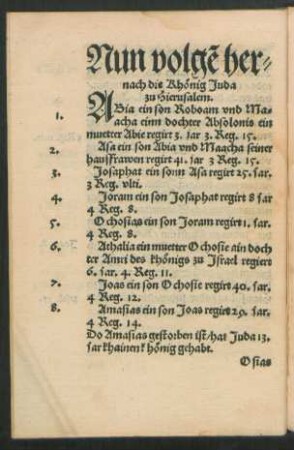 Nun volgẽ her-
nach die Khönig Juda
zu Hierusalem.
1. ABia ein son Roboam vnd Ma-
acha einn dochter Absolonis ein
muetter Abie regirt 3. Jar 3. Reg. 15.
2. Asa ein son Abia vnd Maacha seiner
hausfrawen regirt 41. Jar 3. Reg. 15.
3. Josaphat ein sonn Asa regirt 25. Jar.
3 Reg. vlti.
4. Joram ein son Josaphat regirt 8 Jar
4 Reg. 8.
5. Ochosias ein son Joram regirt 1. Jar.
4 Reg. 8.
6. Athalia ein muetter Ochosie ain doch
ter Amri des khönigs zu Israel regiert
6. Jar. 4. Reg. 11.
7. Joas ein son Ochosie regirt 40. Jar.
4 Reg. 12.
8. Amasias ein son Joas regirt 29. Jar.
4 Reg. 14.
Do Amasias gestorben ist/hat Juda 13.
Jar khainen khönig gehabt.
Osias